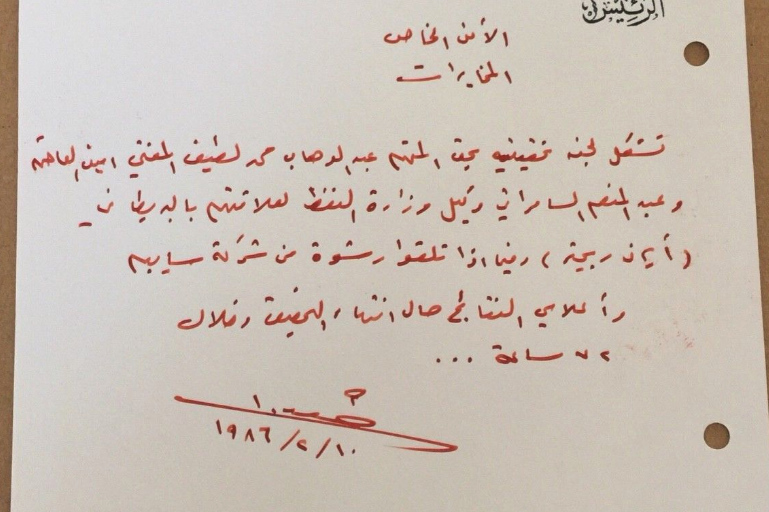 الرئيس
الأمن الخاص
المخابرات
تشكل لجنه تحقيقيه بحق المتهم عبد الوهاب محمد لطيف المفتي امين العاصمه
وعبد المنعم السامرائي وكيل وزارة النفط لعلاقتهم بالبريطاني
(أيان ريجتر) وفيما اذا تلقوا رشوة من شركة سايبم
وأعلامي النتائج حال انتهاء التحقيق وخلال
٧٢ ساعة ...
١٩٨٦/٢/١٠